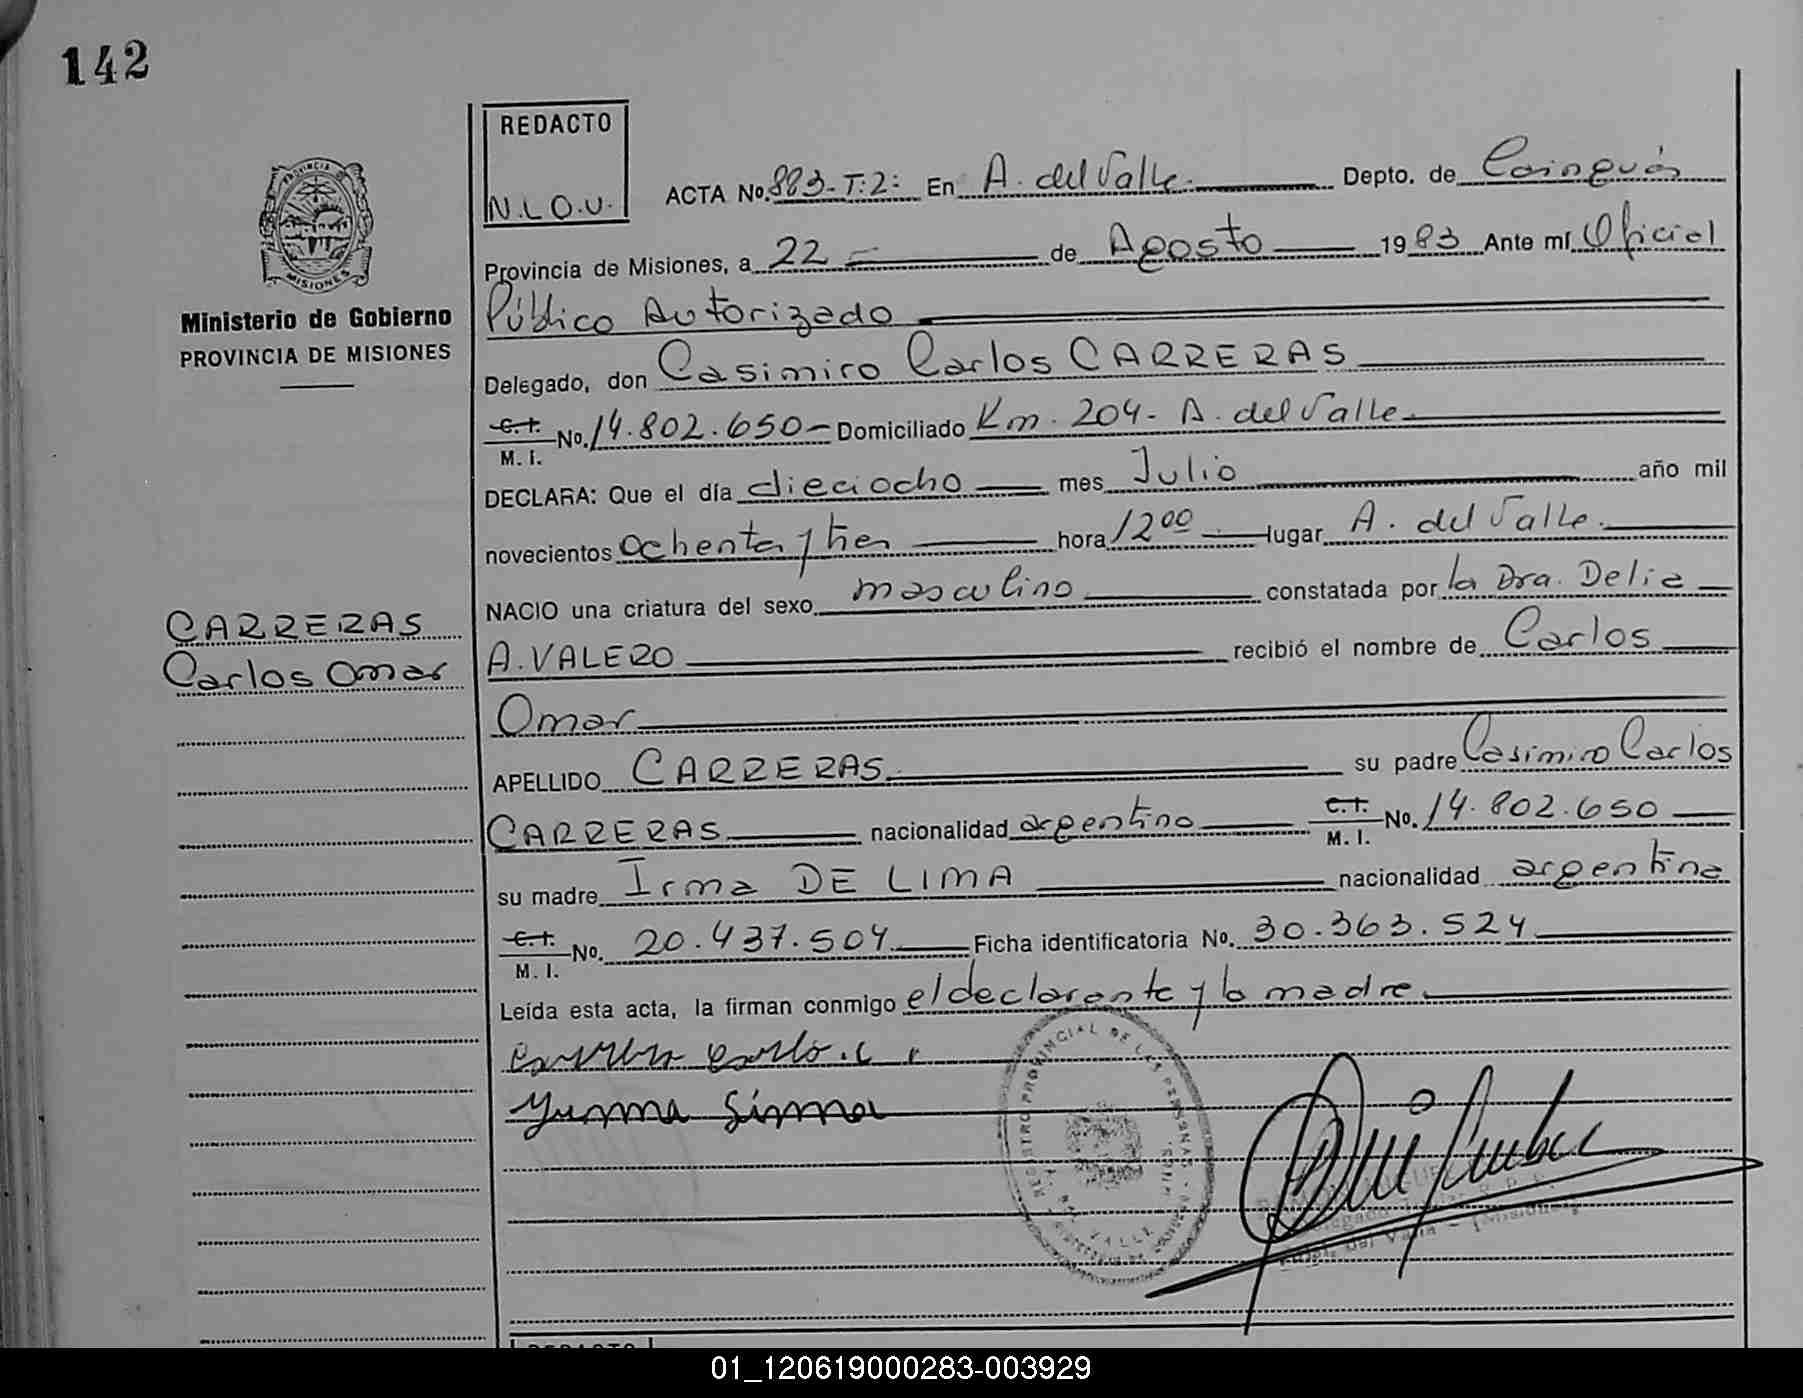 142
REDACTO
N.L.O.U.
PROVINCIA DE
MISIONES
Ministerio de Gobierno
PROVINCIA DE MISIONES
CARRERAS
Carlos Omar
ACTA No. 883-T:2: En A. del Valle. Depto. de Cainguás
Provincia de Misiones, a 22 de Agosto 1983 Ante mí Oficial
Público Autorizado
Delegado, don Casimiro Carlos CARRERAS
C.I. M.I. No. 14.802.650 Domiciliado Km. 204- A. del Valle.
DECLARA: Que el día dieciocho mes Julio año mil
novecientos ochenta y tres hora 12 00 lugar A. del Valle.
NACIO una criatura del sexo masculino constatada por la Dra. Delia
A. VALERO recibió el nombre de Carlos
Omar
APELLIDO CARRERAS su padre Casimiro Carlos
CARRERAS nacionalidad argentino C.I. M.I. No. 14.802.650
su madre Irma DE LIMA nacionalidad argentina
C.I. M.I. No. 20.437.504 Ficha identificatoria No. 30.363.524
Leída esta acta, la firman conmigo el declarante y la madre.
REGISTRO PROVINCIAL DE LAS PERSONAS
VALLE
del Valle - (Misiones)
REDACTO
01_120619000283-003929